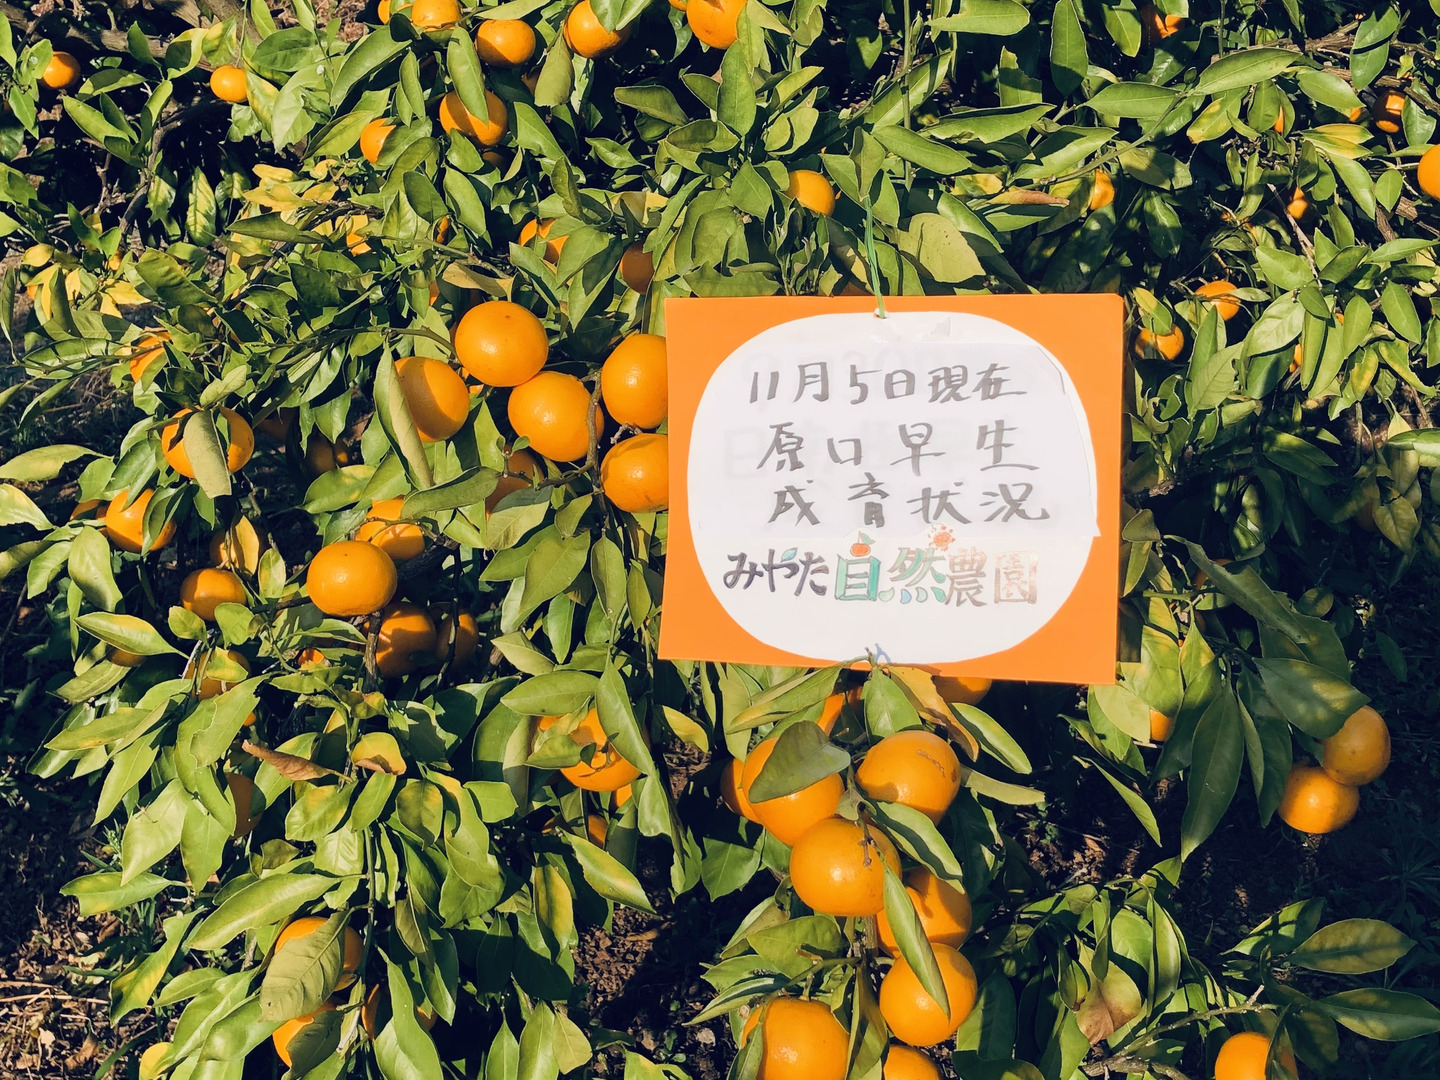 11月5日現在
原口早生
成育状況
みやた自然農園